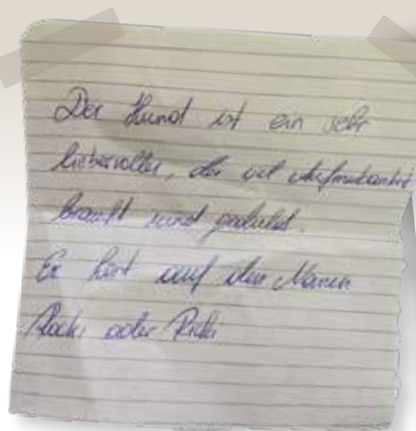 Der Hund ist ein sehr
liebevoller, der vil Aufmerksamkeit
braucht und geduld.
Er hört auf den Namen
Rocki oder Ricki